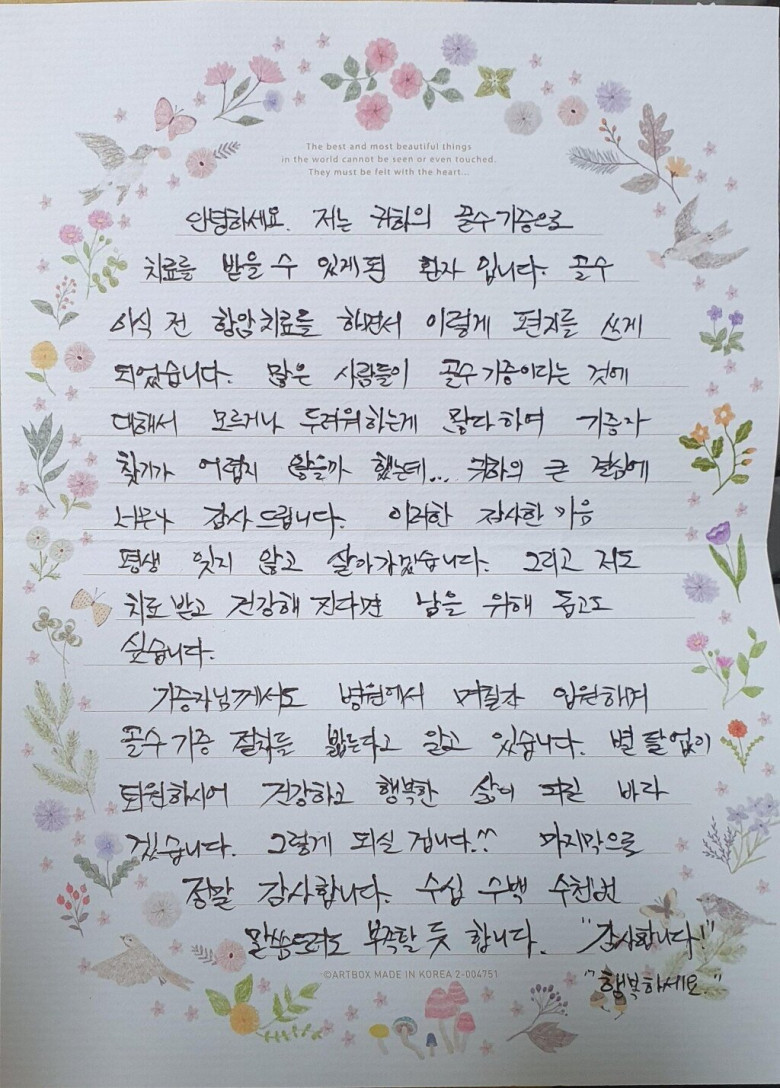 The best and most beautiful things
in the world cannot be seen or even touched.
They must be felt with the heart...
안녕하세요. 저는 귀하의 골수기증으로
치료를 받을 수 있게 된 환자 입니다. 골수
이식 전 항암치료를 하면서 이렇게 편지를 쓰게
되었습니다. 많은 사람들이 골수기증이라는 것에
대해서 모르거나 두려워하는게 많다하여 기증자
찾기가 어렵지 않을까 했는데... 귀하의 큰 결심에
너무나 감사드립니다. 이러한 감사한 마음
평생 잊지 않고 살아가겠습니다. 그리고 저도
치료받고 건강해 진다면 남을 위해 돕고도
싶습니다.
기증자님께서도 병원에서 며칠간 입원하며
골수기증 절차를 밟는다고 알고 있습니다. 별 탈 없이
퇴원하시어 건강하고 행복한 삶이 되길 바라
겠습니다. 그렇게 되실 겁니다.^^ 마지막으로
정말 감사합니다. 수십 수백 수천번
말씀드려도 부족할 듯 합니다. "감사합니다!"
"행복하세요."
©ARTBOX MADE IN KOREA 2-004751